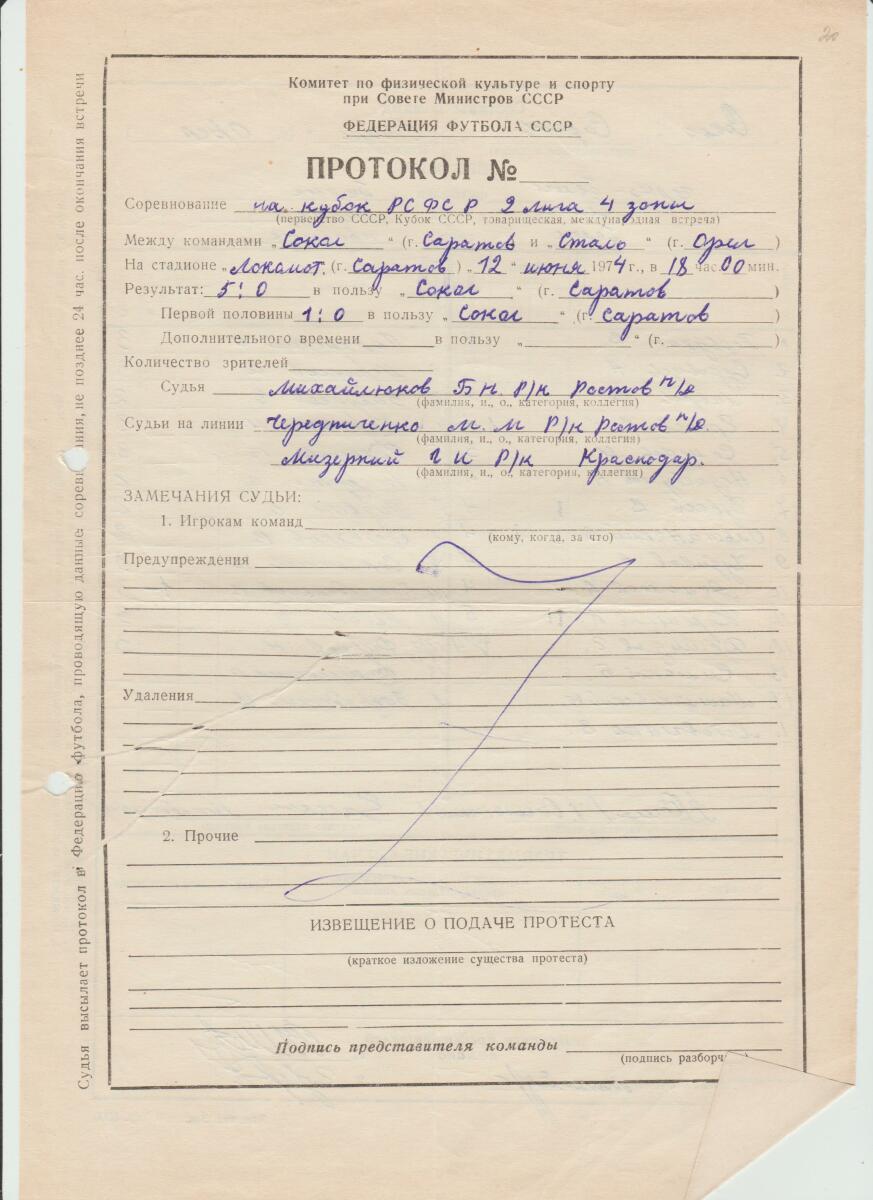 20
Комитет по физической культуре и спорту
при Совете Министров СССР
ФЕДЕРАЦИЯ ФУТБОЛА СССР
ПРОТОКОЛ №
Соревнование на кубок РСФСР 2 лига 4 зоны
(первенство СССР, Кубок СССР, товарищеская, международная встреча)
Между командами „Сокол“ (г. Саратов и „Стало“ (г. Орел)
На стадионе „Локомот. (г. Саратов) „12“ июня 1974 г., в 18 час. 00 мин.
Результат: 5:0 в пользу „Сокол“ (г. Саратов)
Первой половины 1:0 в пользу „Сокол“ (г. Саратов)
Дополнительного времени в пользу „ “ (г. )
Количество зрителей
Судья Михайлюков Б Н. Р/к Ростов н/Д
(фамилия, и., о., категория, коллегия)
Судьи на линии Чередниченко М. М Р/к Ростов н/Д.
(фамилия, и., о., категория, коллегия)
Мизерний Г И Р/к Краснодар.
(фамилия, и., о., категория, коллегия)
ЗАМЕЧАНИЯ СУДЬИ:
1. Игрокам команд
(кому, когда, за что)
Предупреждения
Удаления
2. Прочие
ИЗВЕЩЕНИЕ О ПОДАЧЕ ПРОТЕСТА
(краткое изложение существа протеста)
Подпись представителя команды
(подпись разборч
Судья высылает протокол в Федерацию футбола, проводящую данные соревн ния, не позднее 24 час. после окончания встречи